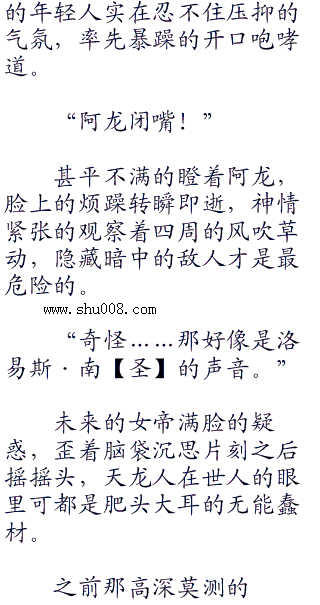 的年轻人实在忍不住压抑的
气氛，率先暴躁的开口咆哮
道。
“阿龙闭嘴！”
甚平不满的瞪着阿龙，
脸上的烦躁转瞬即逝，神情
紧张的观察着四周的风吹草
动，隐藏暗中的敌人才是最
危险的。
www.shu008.com
“奇怪……那好像是洛
易斯·南【圣】的声音。”
未来的女帝满脸的疑
惑，歪着脑袋沉思片刻之后
摇摇头，天龙人在世人的眼
里可都是肥头大耳的无能蠢
材。
之前那高深莫测的